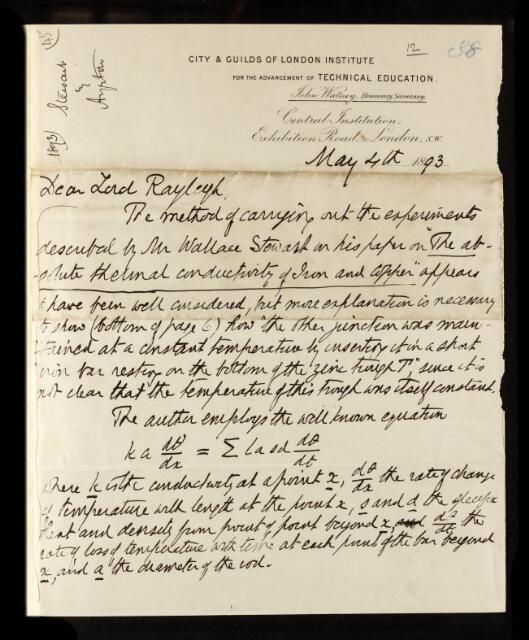 1893) Stewart by Ayrton 145)
12
38
CITY & GUILDS OF LONDON INSTITUTE
FOR THE ADVANCEMENT OF TECHNICAL EDUCATION.
John Watney, Honorary Secretary.
Central Institution,
Exhibition Road, London, S.W.
May 4th 1893
Dear Lord Rayleigh
The method of carrying out the experiments
described by Mr Wallace Stewart in his paper on "The ab-
-solute thermal conductivity of Iron and Copper" appears
to have been well considered, but more explanation is necessary
to show (bottom of page 6) how "the other junction was main-
tained at a constant temperature by inserting it in a short
iron bar resting on the bottom of the zinc trough T", since it is
not clear that the temperature of this trough was itself constant.
The author employs the well known equation
k a dθ/dx = Σ l a s d dθ/dt
where k is the conductivity at a point x, dθ/dx the rate of change
of temperature with length at the point x, s and d the specific
heat and density from point to point beyond x, and the
rate of loss of temperature with time at each point of the bar beyond
x, and a the diameter of the rod.